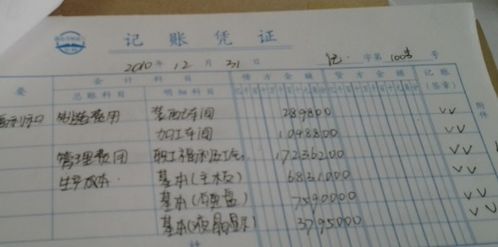 记账凭证
2010年12月31日 记字第100号
要 会计科目 借方金额 贷方金额 记账
总账科目 明细科目 (签章)
制造费用 装配车间 289800
加工车间 1048800
管理费用 职工福利及工资 17236200
生产成本 基本(主板) 6831000
基本(硬盘) 7590000
基本(液晶显示) 3795000
附件